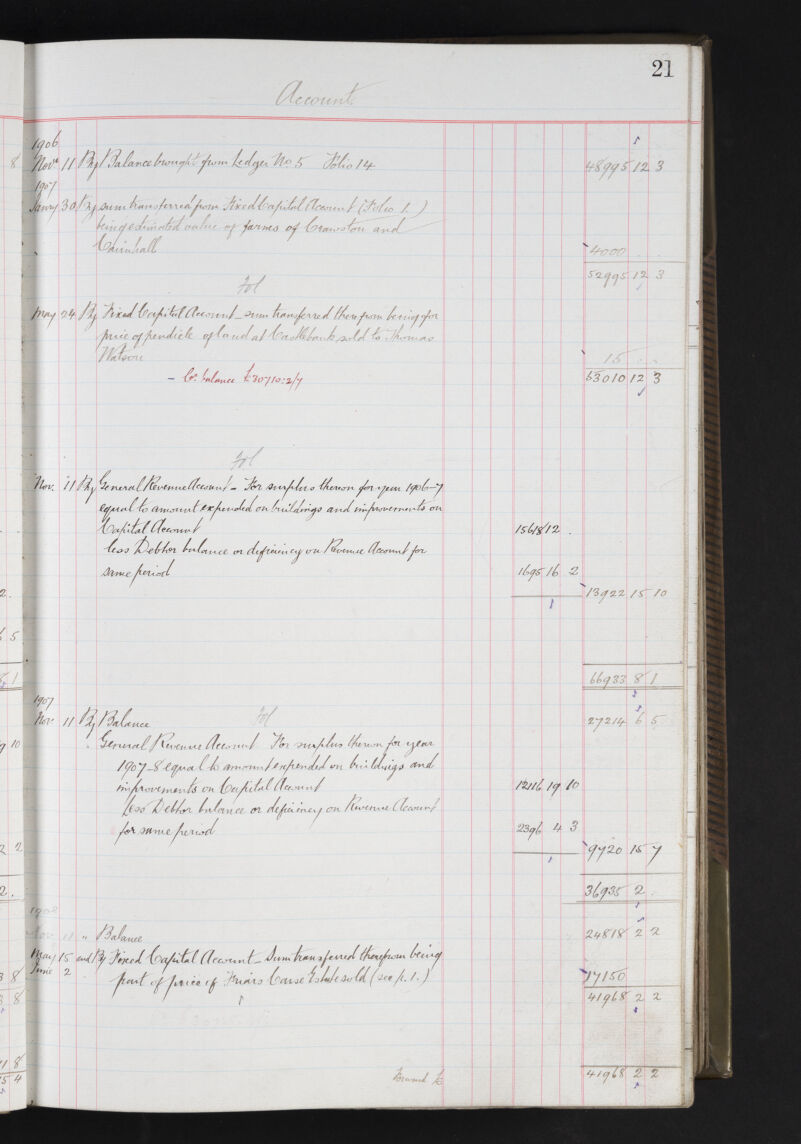 21
Account
1906
Novr 11 By Balance brought from Ledger No 5 Folio 14 48995 12 3
1907
Jany 30 By sum transferred from Fixed Capital Account (Folio 1.)
being estimated value of farms of Crawston and
Cairnhall 4000 . .
52995 12 3
Fol
May 24 By Fixed Capital Account - sum transferred therefrom being for
price of pendicle of land at Castlebank sold to Thomas
Watson 15 . .
- Cr. balance £30710:2/7 53010 12 3
Fol
Nov. 11 By General Revenue Account - For surplus thereon for year 1906-7
equal to amount expended on buildings and improvements on
Capital Account 15618 12 .
less Debtor balance or deficiency on Revenue Account for
same period 1695 16 2
13922 15 10
66933 8 1
1907
Nov. 11 By Balance Fol 27214 6 5
" General Revenue Account For surplus thereon for year
1907-8 equal to amount expended on buildings and
improvements on Capital Account 12116 19 10
less Debtor balance or deficiency on Revenue Account
for same period 2396 4 3
9720 15 7
36935 2 .
1908
Nov. 11 " Balance 24818 2 2
May 15 and By Fixed Capital Account - Sum transferred therefrom being
June 2 part of price of Friars Carse Estate sold (see p. 1.) 17150
41968 2 2
Forward £ 41968 2 2